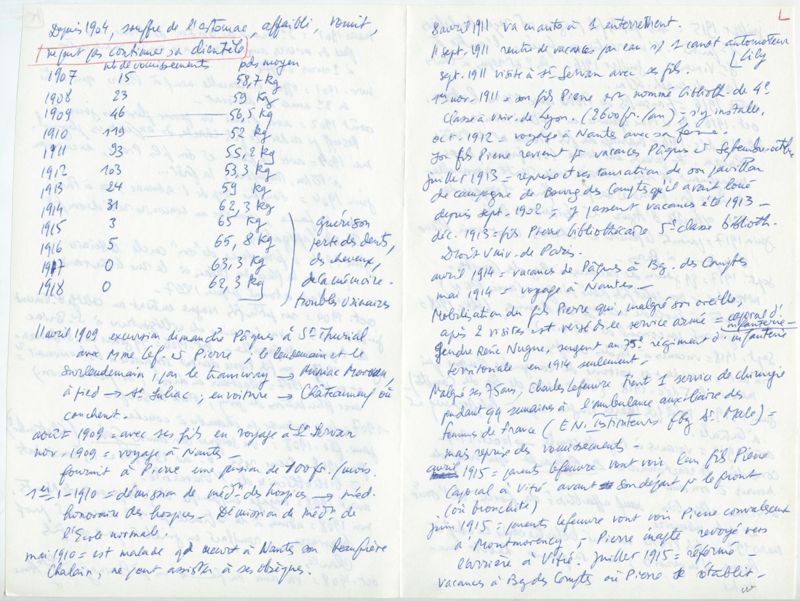 Depuis 1904, souffre de l'estomac, affaibli, vomit,
ne peut pas continuer sa clientèle
nb de vomissements poids moyen
1907 15 58,7 kg
1908 23 59 kg
1909 46 56,5 kg
1910 119 52 kg
1911 93 55,2 kg
1912 103 53,3 kg
1913 24 59 kg
1914 31 62,3 kg
1915 3 65 kg
1916 5 65,8 kg
1917 0 63,3 kg
1918 0 62,3 kg
guérison
perte des dents,
des cheveux,
de la mémoire -
troubles urinaires
11 avril 1909 excursion dimanche Pâques à St Thurial
avec Mme Lef. et Pierre ; le lendemain et le
surlendemain, par le tramway → Pleniac Morvan
à pied → St Suliac ; en voiture → Châteauneuf où
couchent.
août 1909 = avec ses fils en voyage à St Servan
nov. 1909 = voyage à Nantes -
fournit à Pierre une pension de 100 fr. / mois.
1er-1-1910 = démission de méd. des hospices → méd.
honoraire des hospices - Démission de médn de
l'Ecole normale.
mai 1910 = est malade qd meurt à Nantes son beau-frère
Chalain, ne peut assister à ses obsèques.
L
8 avril 1911 va en auto à 1 enterrement.
11 sept. 1911 rentre de vacances par eau s/ 1 canot automoteur
Lily
sept. 1911 visite à St Servan avec ses fils.
1er nov. 1911 = son fils Pierre est nommé biblioth. de 4e
classe à univ. de Lyon. (2600 fr./an) = s'y installe,
oct. 1912 = voyage à Nantes avec sa femme.
Son fils Pierre revient pr vacances Pâques et septembre-octbre
juillet 1913 = reprise et restauration de son pavillon
de campagne de Bourg des Comptes qu'il avait loué
depuis sept. 1902 = y passent vacances été 1913 -
déc. 1913 = fils Pierre bibliothécaire 5e classe biblioth.
Droit Univ. de Paris.
avril 1914 = vacances de Pâques à Bg. des Comptes
mai 1914 = voyage à Nantes -
Mobilisation du fils Pierre qui, malgré son oreille,
après 2 visites est versé ds le service armé = caporal d'
infanterie
gendre René Nugue, sergent au 75e régiment d'infanterie
territoriale en 1914 seulement.
Malgré ses 75 ans, Charles Lefeuvre tient 1 service de chirurgie
pendant 44 semaines à l'ambulance auxiliaire des
femmes de France (E.N. Instituteurs fbg St Malo) =
mais reprise des vomissements -
1915 = parents Lefeuvre vont voir leur fils Pierre
caporal à Vitré avant son départ pr le front
(où bronchite)
juin 1915 = parents Lefeuvre vont voir Pierre convalescent
à Montmorency ; Pierre inapte renvoyé vers
l'arrière à Vitré. Juillet 1915 = réformé -
vacances à Bg des Comptes où Pierre se rétablit -